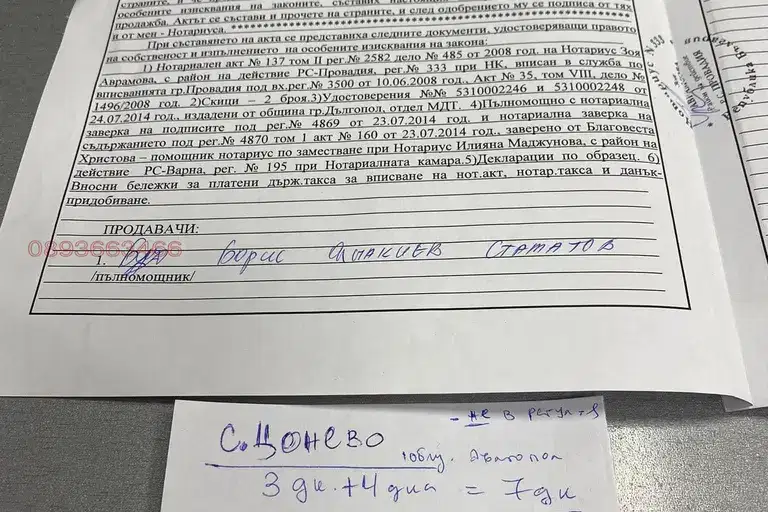 страните, и че
особените изисквания на законите, съставих
продажба. Актът се състави и прочете на страните, и след одобрението му се подписа от тях
и от мен - Нотариуса.
При съставянето на акта се представиха следните документи, удостоверяващи правото
на собственост и изпълнението на особените изисквания на закона:
1) Нотариален акт № 137 том II рег.№ 2582 дело № 485 от 2008 год. на Нотариус Зоя
Аврамова, с район на действие РС-Провадия, рег.№ 333 при НК, вписан в служба по
вписванията гр.Провадия под вх.рег.№ 3500 от 10.06.2008 год., Акт № 35, том VIII, дело №
1496/2008 год. 2)Скици – 2 броя.3)Удостоверения №№ 5310002246 и 5310002248 от
24.07.2014 год., издадени от община гр.Дългопол, отдел МДТ. 4)Пълномощно с нотариална
заверка на подписите под рег.№ 4869 от 23.07.2014 год. и нотариална заверка на
съдържанието под рег.№ 4870 том 1 акт № 160 от 23.07.2014 год., заверено от Благовеста
Христова – помощник нотариус по заместване при Нотариус Илияна Маджунова, с район на
действие РС-Варна, рег. № 195 при Нотариалната камара.5)Декларации по образец. 6)
Вносни бележки за платени държ.такса за вписване на нот.акт, нотар.такса и данък-
придобиване.
ПРОДАВАЧИ:
0893663466
1. Борис Статов
/пълномощник/
- не в регулия
с. Цонево
общ. Дългопол
3 дк. + 4 дка = 7 дк